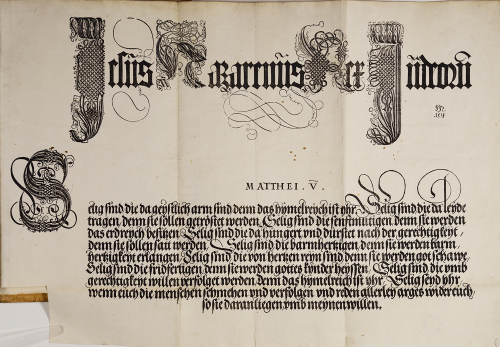 Jesus Nazarenus Rex Judeorum
MATTHEI. V.
Selig sind die da geystlich arm sind denn das hymelreych ist yhr. Selig sind die da leyde
tragen, denn sie sollen getröstet werden. Selig sind die senfftmutigen denn sie werden
das erdreych besitzen. Selig sind die da hungert und dürstet nach der gerechtigkeyt,
denn sie sollen satt werden. Selig sind die barmhertzigen, denn sie werden barm
hertzigkeyt erlangen. Selig sind die von hertzen reyn sind denn sie werden got schawe.
Selig sind die fridfertigen, denn sie werden gottes kynder heyssen. Selig sind die umb
gerechtigkeyt willen verfolget werden, denn das hymelreich ist yhr. Selig seyd yhr
wenn euch die menschen schmehen und verfolgen und reden allerley arges wider euch,
so sie daran liegen umb meynen willen.